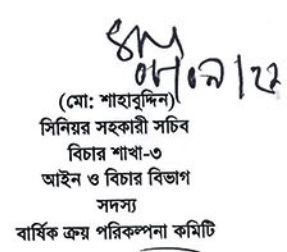 ০৮/০৯/২২
(মো: শাহাবুদ্দিন)
সিনিয়র সহকারী সচিব
বিচার শাখা-৩
আইন ও বিচার বিভাগ
সদস্য
বার্ষিক ক্রয় পরিকল্পনা কমিটি